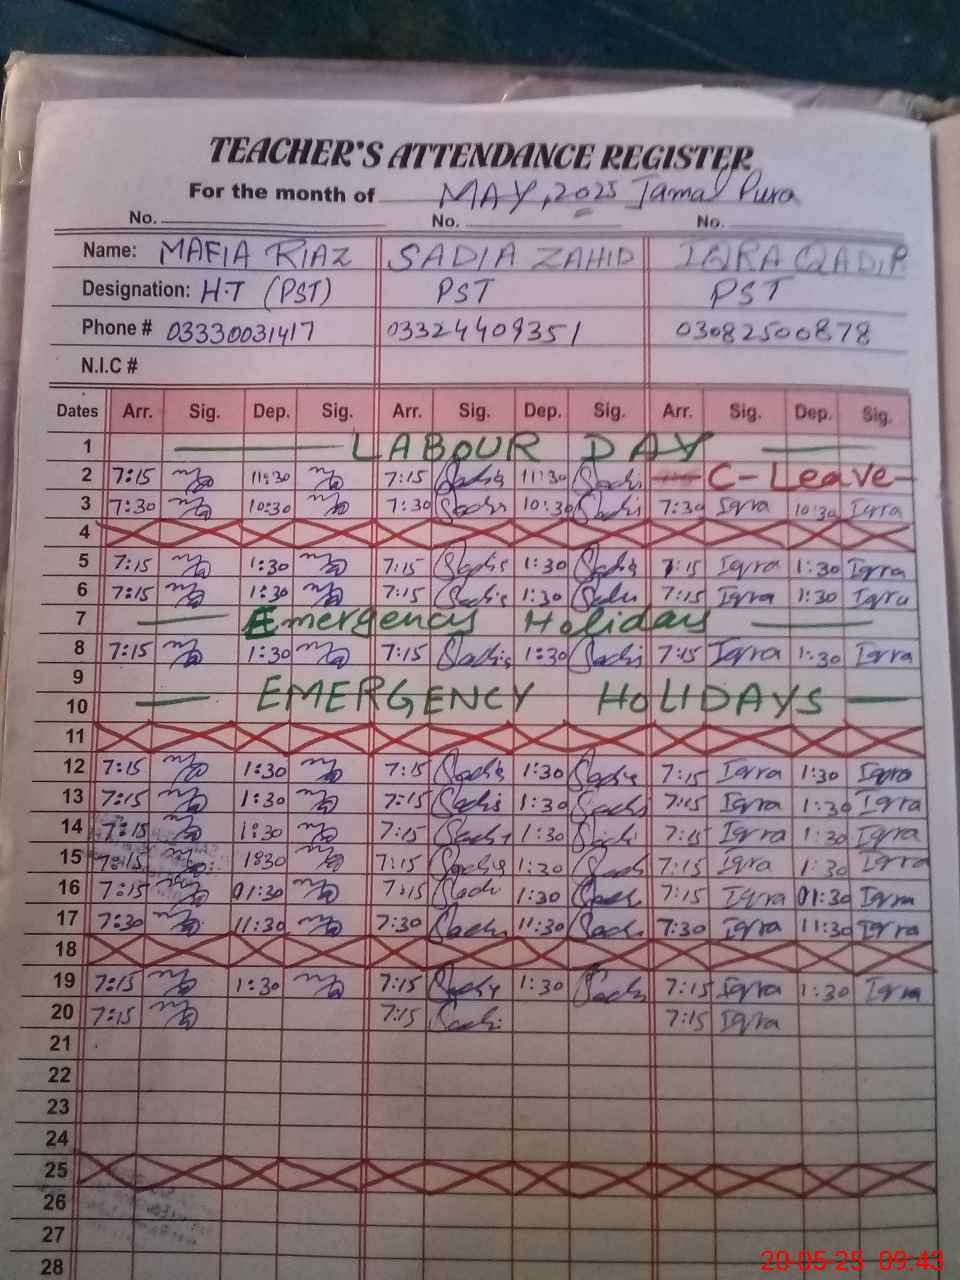 TEACHER'S ATTENDANCE REGISTER
For the month of MAY, 2025 Jamal Pura
No. No. No.
Name: MAFIA RIAZ SADIA ZAHID IQRA QADIR
Designation: H.T (PST) PST PST
Phone # 03330031417 03324409351 03082500878
N.I.C #
Dates Arr. Sig. Dep. Sig. Arr. Sig. Dep. Sig. Arr. Sig. Dep. Sig.
1 LABOUR DAY
2 7:15 11:30 7:15 Sadia 11:30 Sadia C-Leave
3 7:30 10:30 7:30 Sadia 10:30 Sadia 7:30 Iqra 10:30 Iqra
4
5 7:15 1:30 7:15 Sadia 1:30 Sadia 7:15 Iqra 1:30 Iqra
6 7:15 1:30 7:15 Sadia 1:30 Sadia 7:15 Iqra 1:30 Iqra
7 Emergency Holiday
8 7:15 1:30 7:15 Sadia 1:30 Sadia 7:15 Iqra 1:30 Iqra
9
10 EMERGENCY HOLIDAYS
11
12 7:15 1:30 7:15 Sadia 1:30 Sadia 7:15 Iqra 1:30 Iqra
13 7:15 1:30 7:15 Sadia 1:30 Sadia 7:15 Iqra 1:30 Iqra
14 7:15 1:30 7:15 Sadia 1:30 Sadia 7:15 Iqra 1:30 Iqra
15 7:15 1:30 7:15 Sadia 1:30 Sadia 7:15 Iqra 1:30 Iqra
16 7:15 01:30 7:15 Sadia 1:30 Sadia 7:15 Iqra 01:30 Iqra
17 7:30 11:30 7:30 Sadia 11:30 Sadia 7:30 Iqra 11:30 Iqra
18
19 7:15 1:30 7:15 Sadia 1:30 Sadia 7:15 Iqra 1:30 Iqra
20 7:15 7:15 Sadia 7:15 Iqra
21
22
23
24
25
26
27
28
20-05-25 09:43